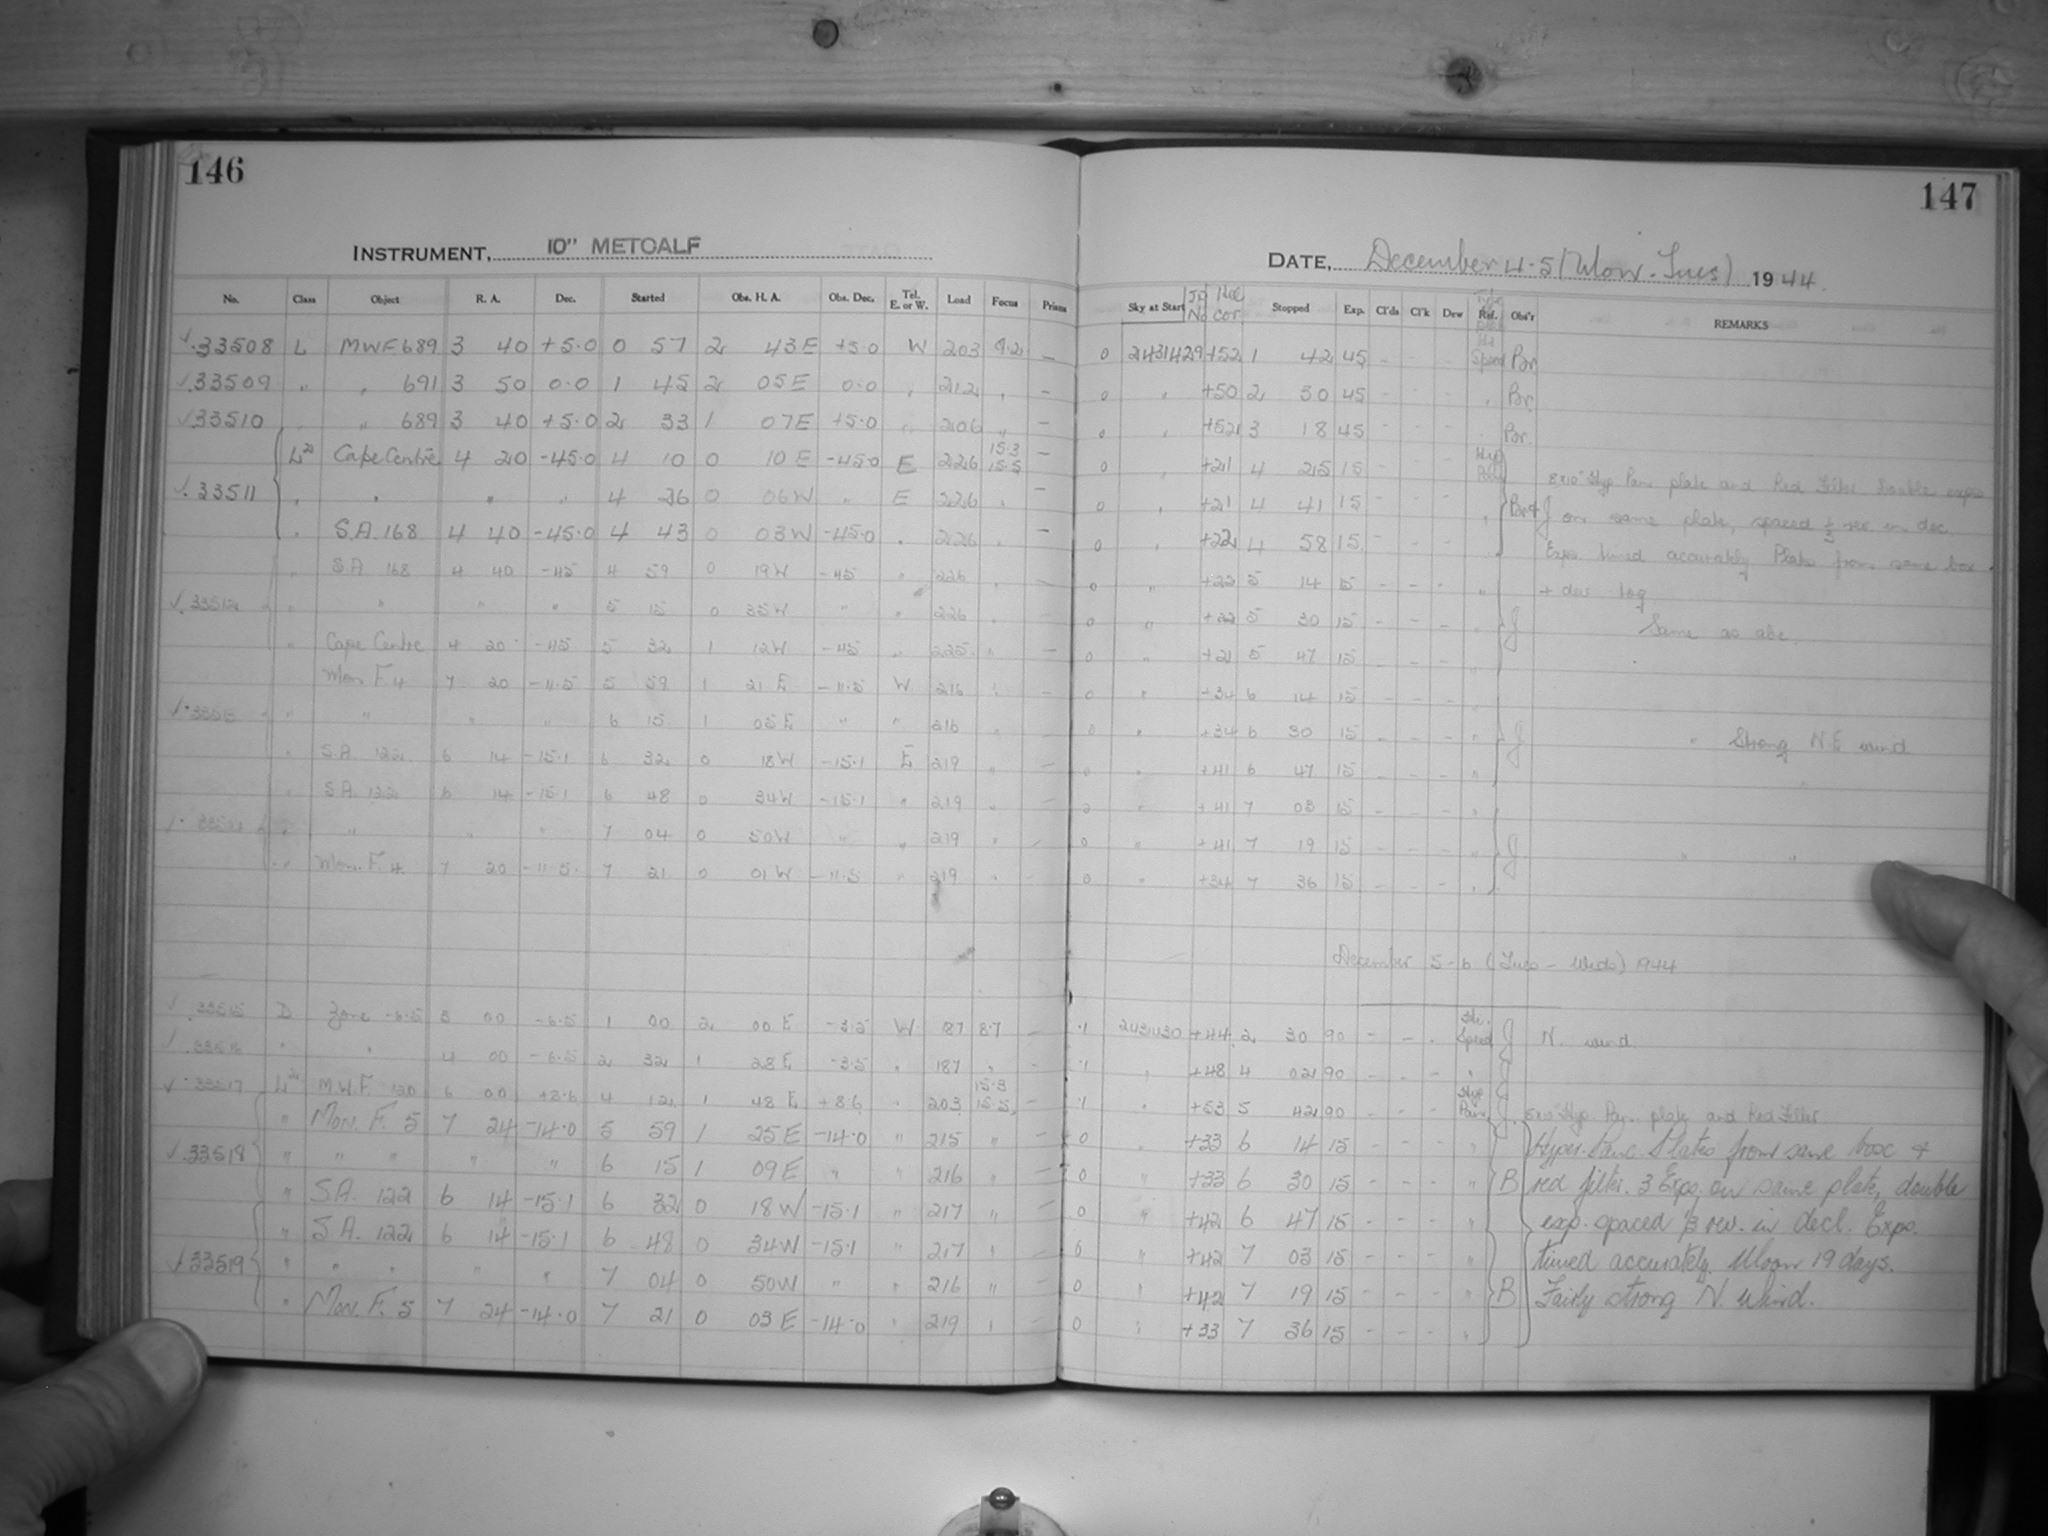 146
147
INSTRUMENT, 10" METCALF
DATE, December 4-5 (Mon-Tues) 1944
No. Class Object R. A. Dec. Started Obs. H. A. Obs. Dec. Tel. E. or W. Load Focus Prism Sky at Start Stopped Exp. Cl'ds Cl'k Dew Ref. Obs'r REMARKS
33508 L MWF 689 3 40 +5.0 0 57 2 43E +5.0 W 203 9.2 – 0 2431429 +52 1 42 45 - - - Speed Br
33509 " " 691 3 50 0.0 1 45 2 05E 0.0 " 212 " – 0 " +50 2 30 45 - - - " Br.
33510 " " 689 3 40 +5.0 2 33 1 07E +5.0 " 206 " – 0 " +52 3 18 45 - - - Br.
Cape Centre 4 20 -45.0 4 10 0 10E -45.0 E 226 15.3 15.5 – 0 " +21 4 25 15 - - - 8x10" Hyp. Pan. plate and Red Filter double expo
33511 " " " " 4 26 0 06W " E 226 " – 0 " +21 4 41 15 - - - " on same plate, spaced ⅓ rev in dec.
" S.A. 168 4 40 -45.0 4 43 0 03W -45.0 " 226 " – 0 " +22 4 58 15 - - - Expo. timed accurately Plates from same box
" S.A. 168 4 40 -45 4 59 0 19W -45 " 226 " – 0 " +22 5 14 15 - - - "
33512 " " " " 5 15 0 35W " " 226 " 0 " +22 5 30 15 - - - " J Same as abe.
" Cape Centre 4 20 -45 5 32 1 12W -45 " 225 " – 0 " +21 5 47 15 - - - "
Mon F. 4 7 20 -11.5 5 59 1 21E -11.5 W 216 " – 0 " +34 6 14 15 - - -
33513 " " " " 6 15 1 05E " " 216 " 0 " +34 6 30 15 - - - " J " Strong N.E wind
" S.A. 122 6 14 -15.1 6 32 0 18W -15.1 E 219 " – 0 " +41 6 47 15 - - - "
" S.A. 122 6 14 -15.1 6 48 0 34W -15.1 " 219 " – 0 " +41 7 03 15 - - - "
33514 " " " " 7 04 0 50W " " 219 " – 0 " +41 7 19 15 - - - " J " "
" Mon. F. 4 7 20 -11.5 7 21 0 01W -11.5 " 219 " - 0 " +34 7 36 15 - - - "
December 5-6 (Tues - Weds) 1944
33515 D Zone -6.5 3 00 -6.5 1 00 2 00E -3.5 W 187 8.7 – .1 2431430 +44 2 30 90 - - - Speed J N. wind.
33516 " " 4 00 -6.5 2 32 1 28E -3.5 " 187 " – .1 " +48 4 02 90 - - - " J
33517 M.W.F. 120 6 00 +8.6 4 12 1 48E +8.6 " 203 15.3 15.5 – .1 " +53 5 42 90 - - - Hyp Pan J 8x10" Hyp. Pan. plate and Red Filter
" Mon. F. 5 7 24 -14.0 5 59 1 25E -14.0 " 215 " – 0 " +33 6 14 15 - - - " Hyper-Panc. Plates from same box +
33518 " " " " " " 6 15 1 09E " " 216 " – 0 " +33 6 30 15 - - - " B red filter. 3 Expo. on same plate, double
" S.A. 122 6 14 -15.1 6 32 0 18W -15.1 " 217 " – 0 " +42 6 47 15 - - - " exp. spaced ⅓ rev. in decl. Expo.
" S.A. 122 6 14 -15.1 6 48 0 34W -15.1 " 217 " – 0 " +42 7 03 15 - - - " timed accurately. Moon 19 days.
33519 " " " " " 7 04 0 50W " " 216 " – 0 " +42 7 19 15 - - - " B Fairly strong N. Wind.
" Mon. F. 5 7 24 -14.0 7 21 0 03E -14.0 " 219 " – 0 " +33 7 36 15 - - - "